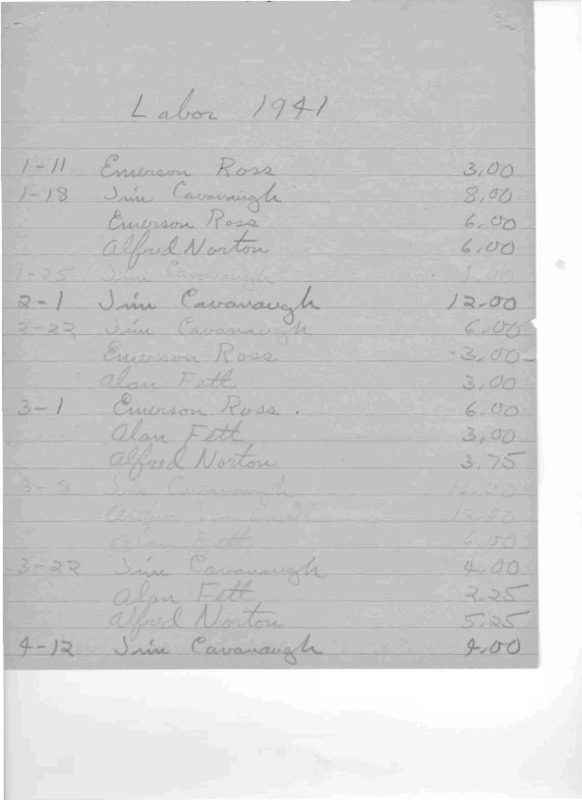 Labor 1941
1-11 Emerson Ross 3.00
1-18 Jim Cavanaugh 8.00
Emerson Ross 6.00
Alfred Norton 6.00
1-25 Jim Cavanaugh
2-1 Jim Cavanaugh 12.00
2-22 Jim Cavanaugh 6.00
Emerson Ross 3.00
Alan Fett 3.00
3-1 Emerson Ross. 6.00
Alan Fett 3.00
Alfred Norton 3.75
3-8 Jim Cavanaugh
12.00
Alan Fett 6.00
3-22 Jim Cavanaugh 4.00
Alan Fett 2.25
Alfred Norton 5.25
4-12 Jim Cavanaugh 4.00